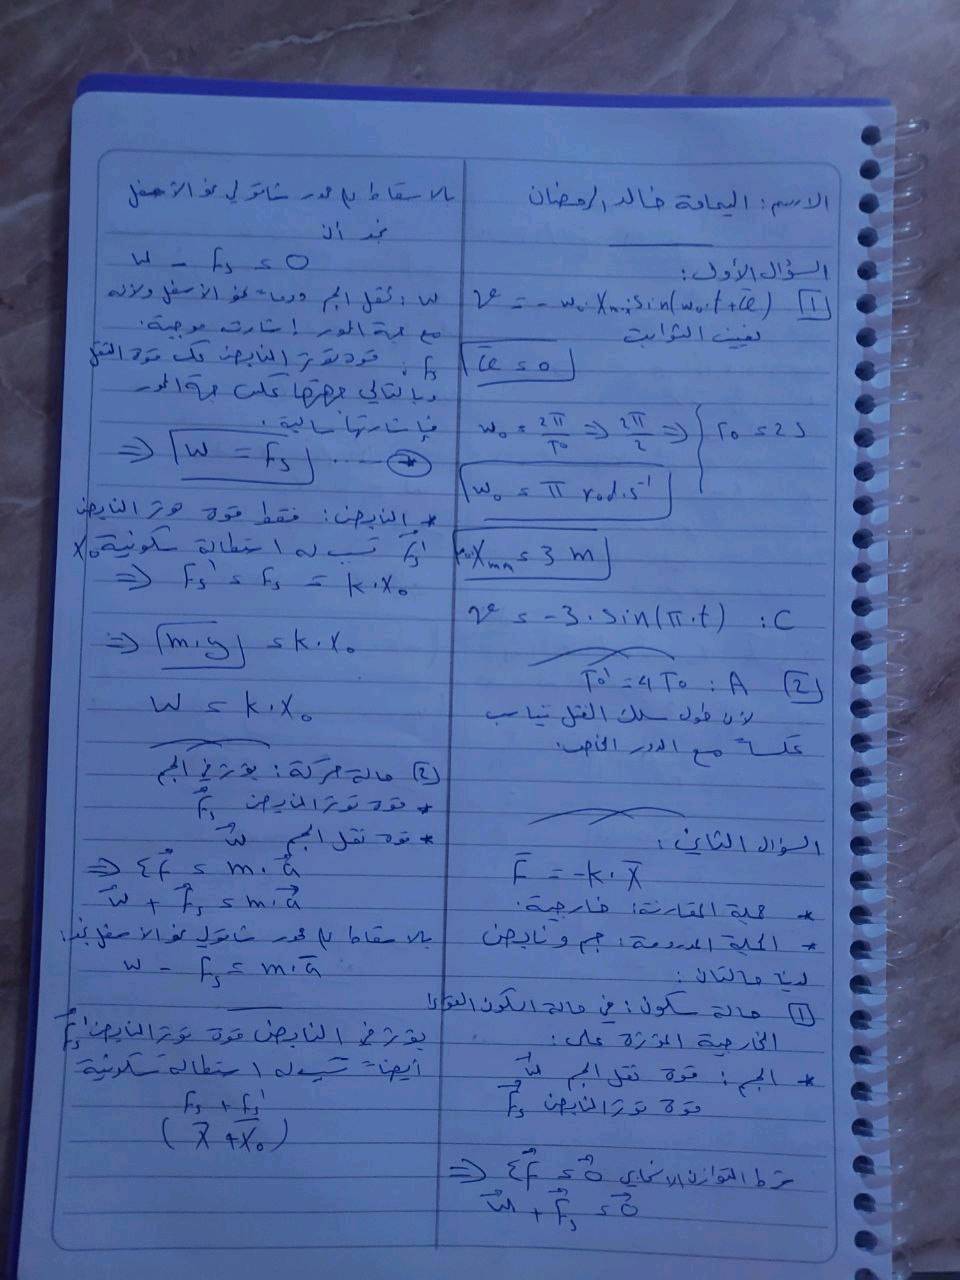 الاسم: اليمامة خالد الرمضان
السؤال الأول:
[1] v = - w₀ X_max sin(w₀.t + φ̄)
نعين الثوابت
φ̄ = 0
T₀ = 2 s ⇒ w₀ = 2π/T₀ ⇒ 2π/2
w₀ = π rad.s⁻¹
X_max = 3 m
C: v = -3. sin(π.t)
[2] A: T₀' = 4T₀
لأن طول سلك الفتل يتناسب
عكساً مع الدور الخاص.
السؤال الثاني:
F̄ = -k.x̄
* جملة المقارنة: خارجية.
* الجملة المدروسة: جسم ونابض
لدينا حالتان:
[1] حالة سكون: في حالة السكون القوى
الخارجية المؤثرة على:
* الجسم: قوة ثقل الجسم W⃗
قوة توتر النابض F⃗s
شرط التوازن الانسحابي ΣF⃗ = 0⃗ ⇒
W⃗ + F⃗s = 0⃗
بالاسقاط على محور شاقولي نحو الأسفل
نجد أن
W - Fs = 0
W: ثقل الجسم دوماً نحو الأسفل ولأنه
مع جهة المحور إشارته موجبة.
Fs: قوة توتر النابض عكس قوة الثقل
وبالتالي جهتها عكس جهة المحور
فإشارتها سالبة.
⇒ W = Fs ..... *
* النابض: فقط قوة توتر النابض
F⃗s' تسبب له استطالة سكونية X₀
⇒ Fs' = Fs = k.X₀
⇒ m.g = k.X₀
W = k.X₀
[2] حالة حركة: يؤثر في الجسم
* قوة توتر النابض F⃗s
* قوة ثقل الجسم W⃗
⇒ ΣF⃗ = m.a⃗
W⃗ + F⃗s = m.a⃗
بالاسقاط على محور شاقولي نحو الاسفل نجد:
W - Fs = m.ā
يؤثر في النابض قوة توتر النابض F⃗s'
أيضاً تسبب له استطالة سكونية
Fs + Fs'
(x̄ + X₀)